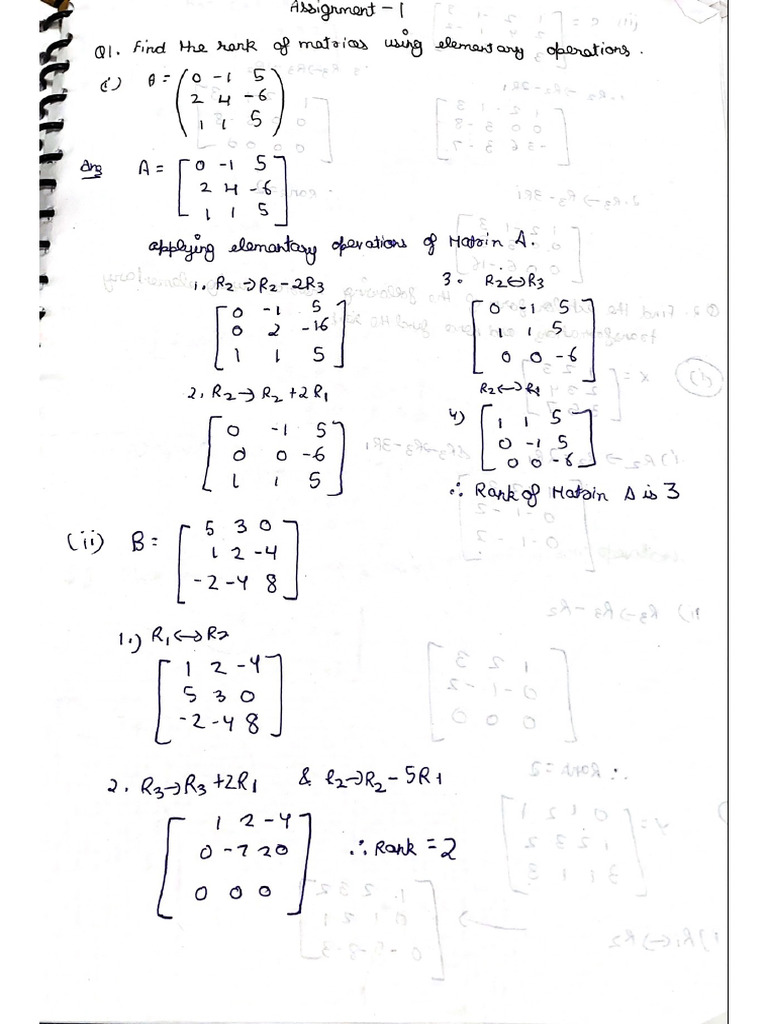 Assignment - 1
Q1. Find the rank of matrias using elementary operations.
(i) A = ( 0 -1 5
2 4 -6
1 1 5 )
Ans A = [ 0 -1 5
2 4 -6
1 1 5 ]
applying elementary operations of Matrin A:
1. R2 → R2 - 2R3
[ 0 -1 5
0 2 -16
1 1 5 ]
2. R2 → R2 + 2R1
[ 0 -1 5
0 0 -6
1 1 5 ]
3. R2 ↔ R3
[ 0 -1 5
1 1 5
0 0 -6 ]
R2 ↔ R1
4) [ 1 1 5
0 -1 5
0 0 -6 ]
∴ Rank of Matrin A is 3
(ii) B = [ 5 3 0
1 2 -4
-2 -4 8 ]
1.) R1 ↔ R2
[ 1 2 -4
5 3 0
-2 -4 8 ]
2. R3 → R3 + 2R1 & R2 → R2 - 5R1
[ 1 2 -4
0 -7 20
0 0 0 ]
∴ Rank = 2